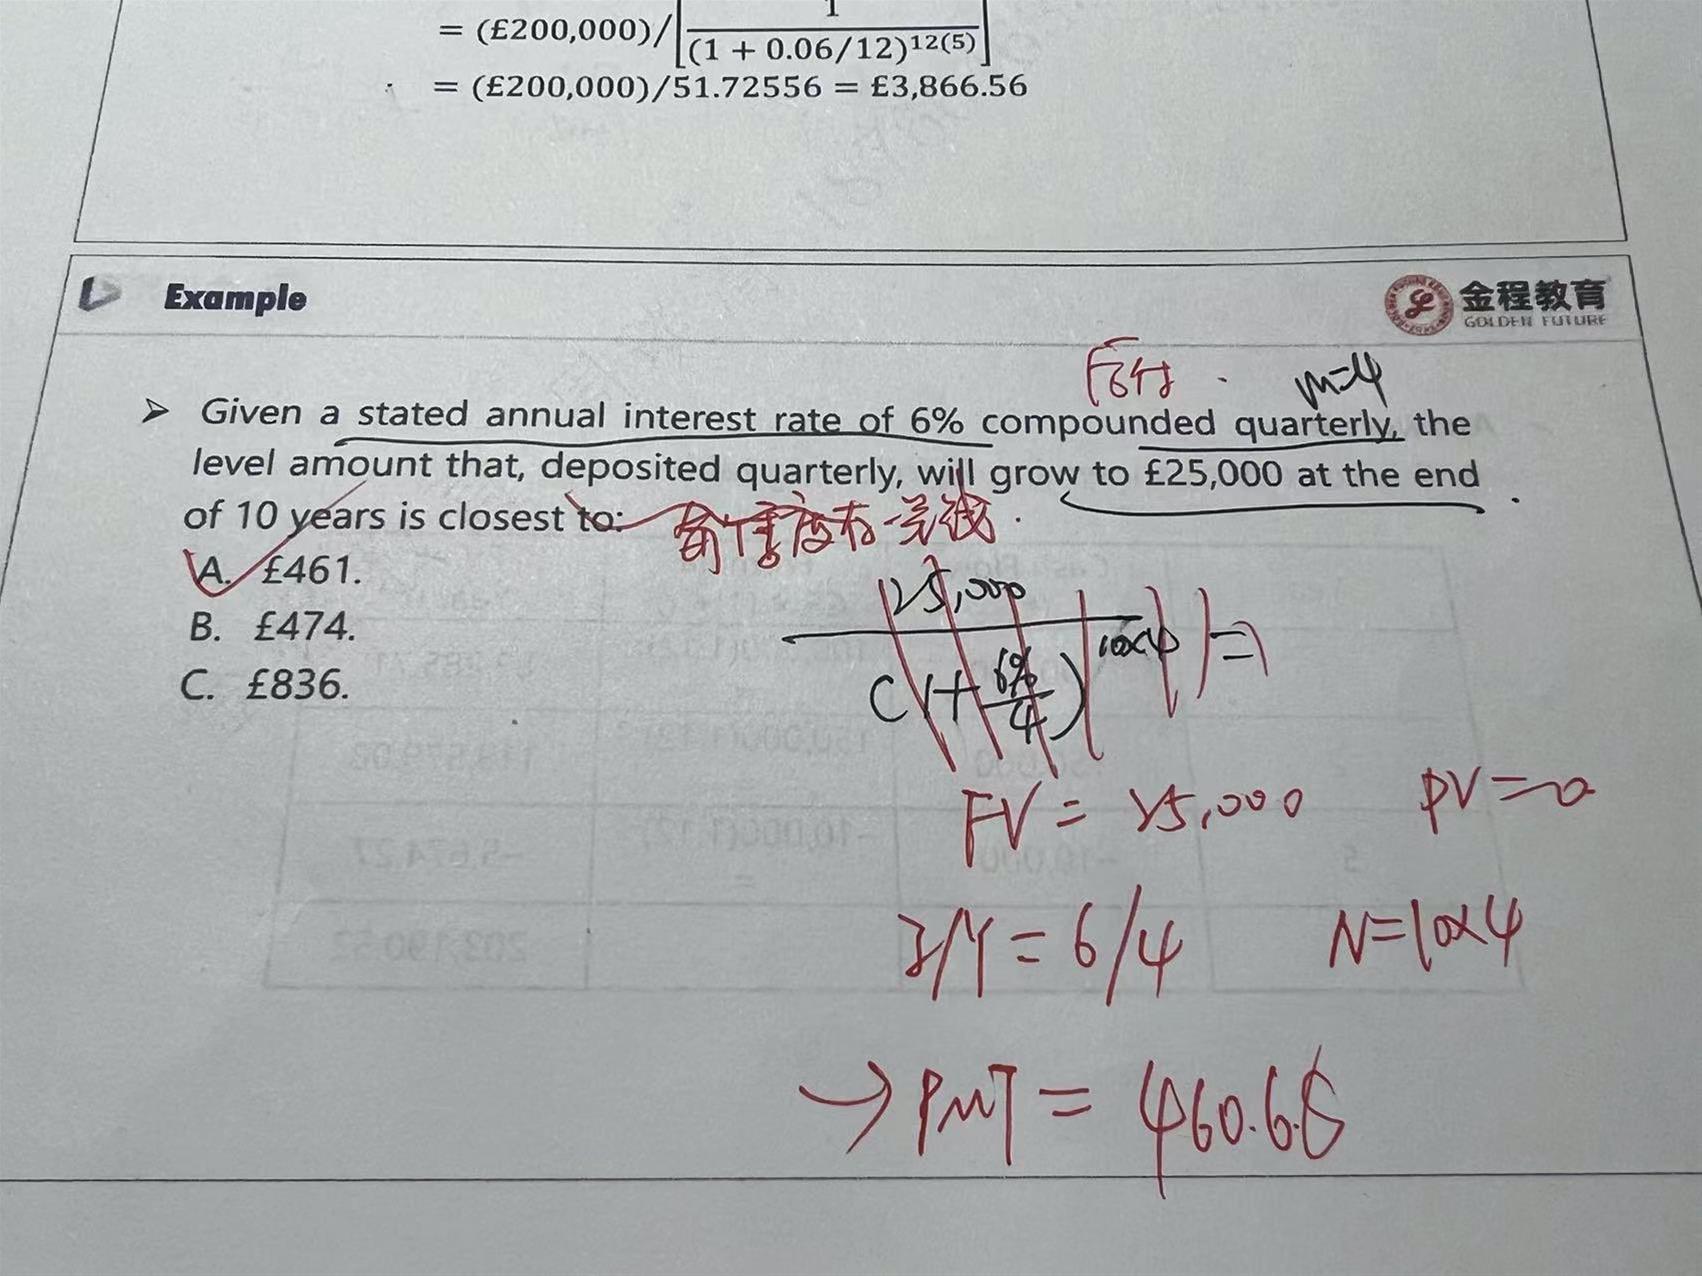 = (£200,000)/[1/(1 + 0.06/12)^12(5)]
= (£200,000)/51.72556 = £3,866.56
Example
金程教育
GOLDEN FUTURE
后付. m=4
➢ Given a stated annual interest rate of 6% compounded quarterly, the
level amount that, deposited quarterly, will grow to £25,000 at the end
of 10 years is closest to:
每个季度存一笔钱.
A. £461.
B. £474.
C. £836.
25,000
(1+6%/4)^10×4 =
FV = 25,000 PV=0
I/Y = 6/4 N=10×4
→ PMT = 460.68